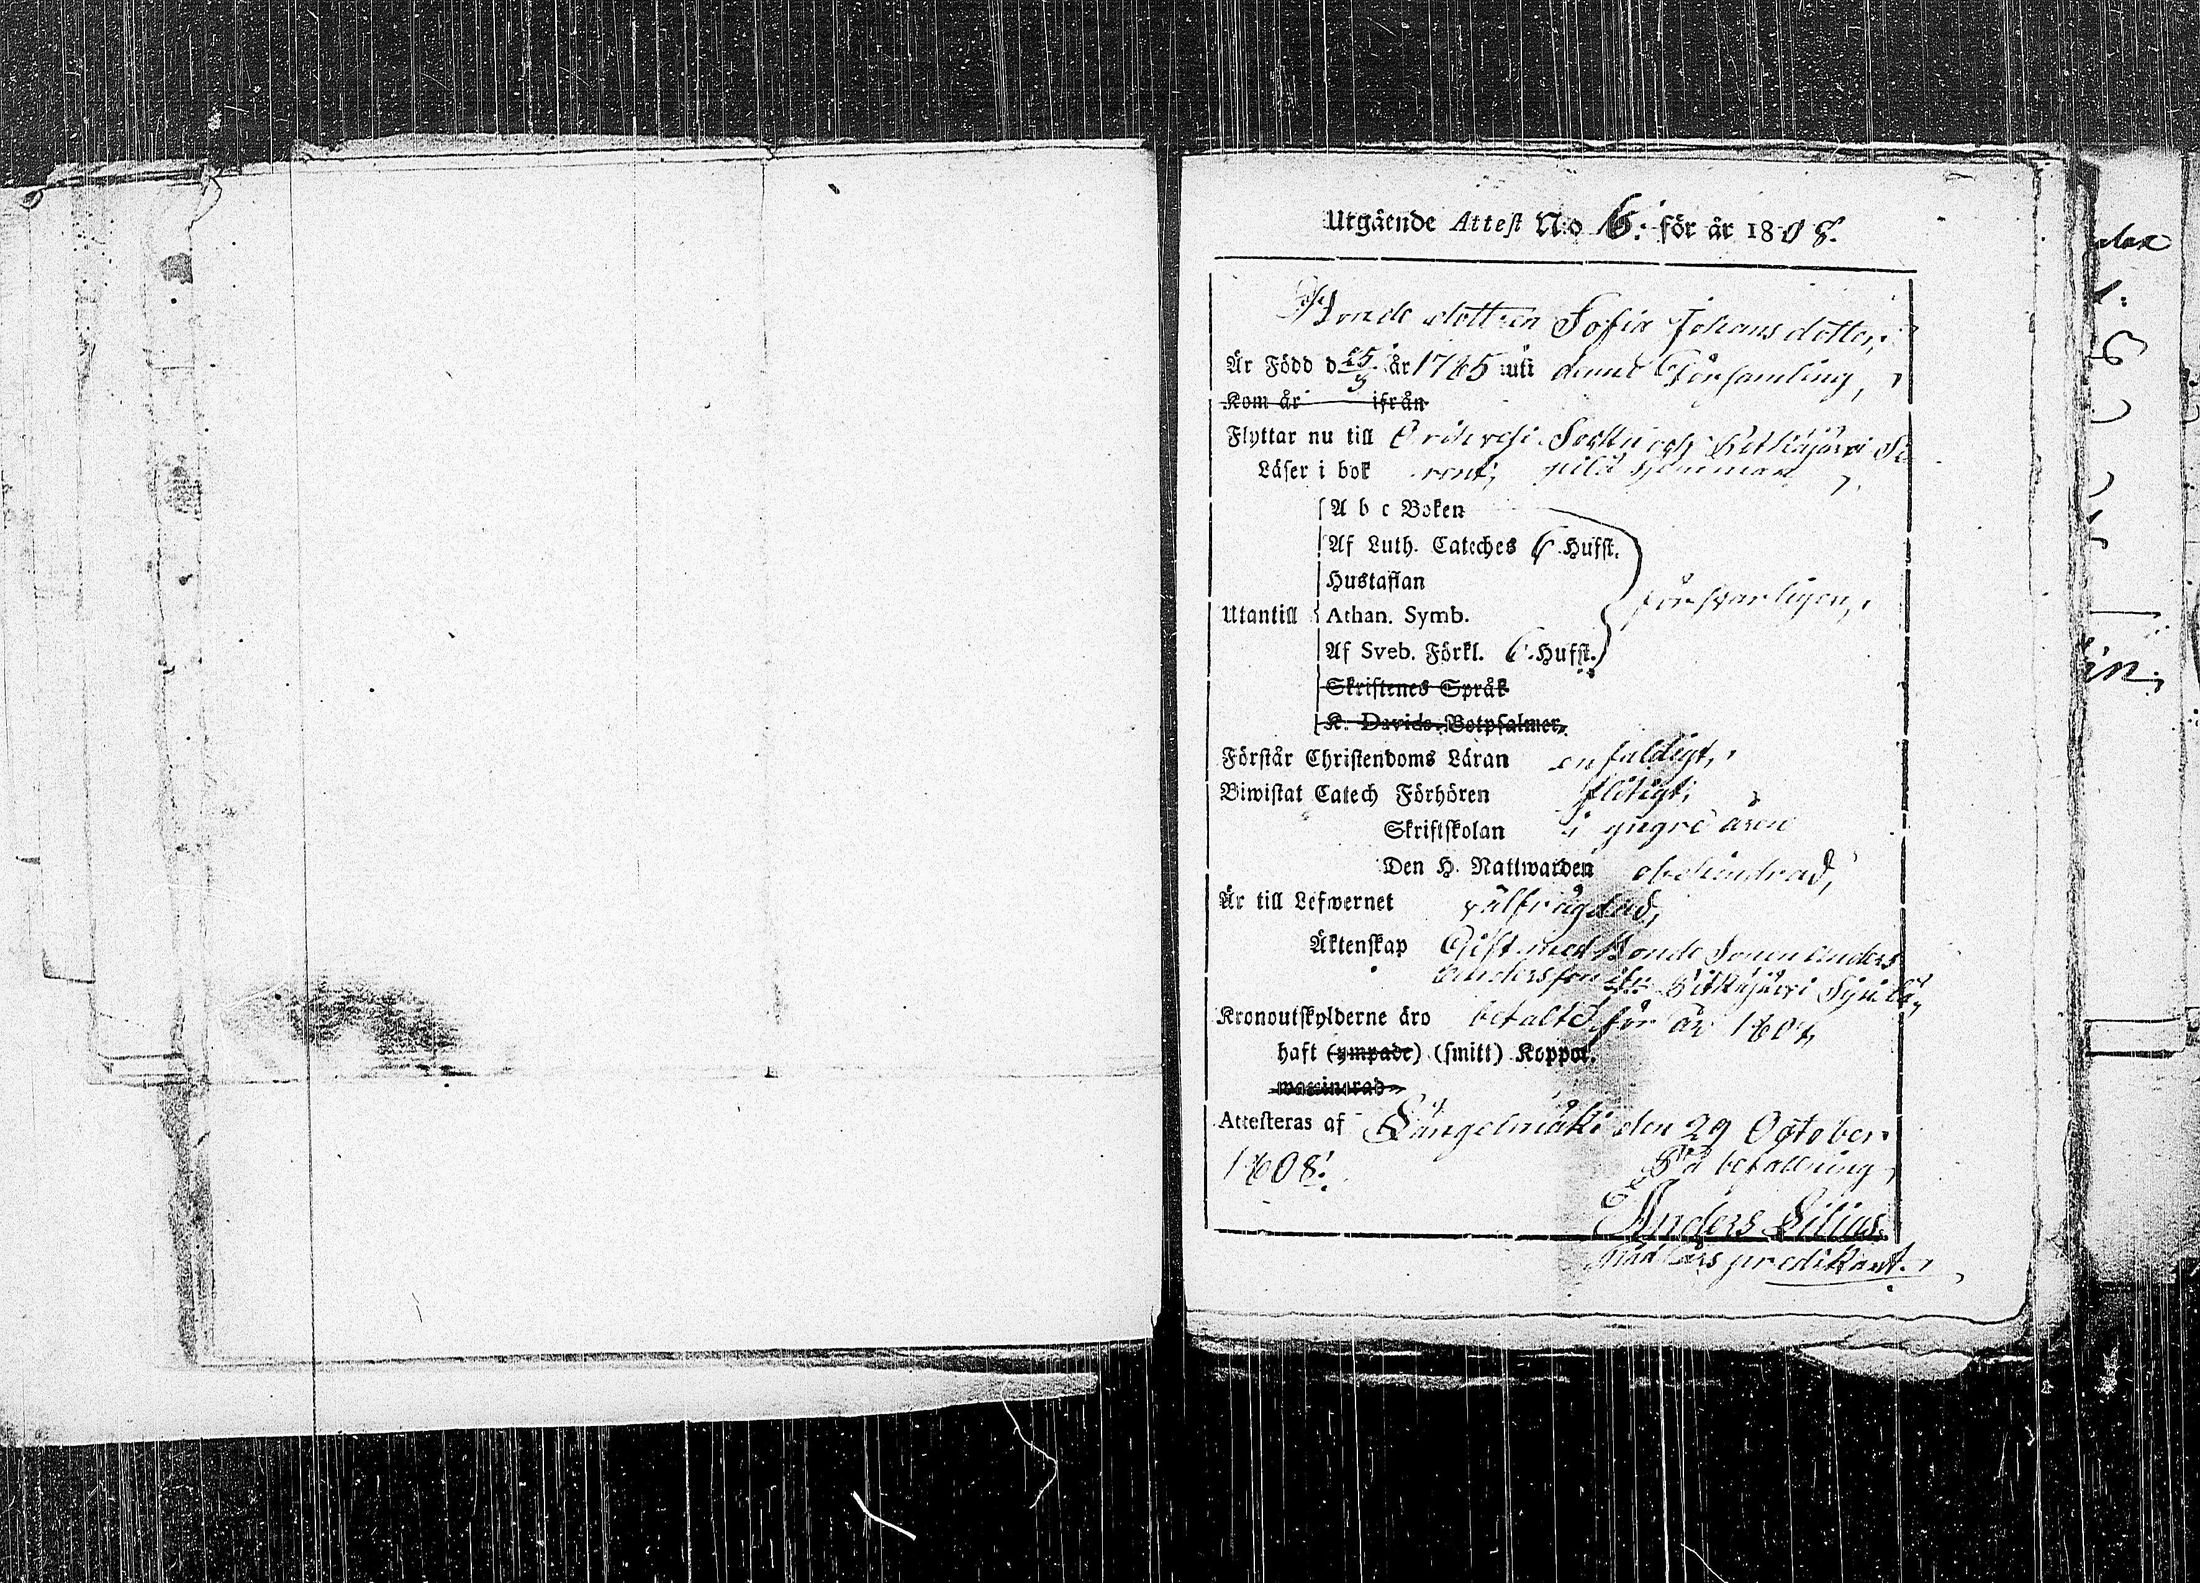 Utgående Attest No 6: för år 1808.
Bonde dottren Sofia Johansdotter,
Är Född d 25/9 år 1785 uti denne Församling,
Kom år ifrån
Flyttar nu till Orihvesi Sockn och Pitkäjärvi
Läser i bok rent,
A b c Boken
Af Luth. Cateches 6 Hufst.
Hustaflan
försvarligen,
Utantill Athan. Symb.
Af Sveb. Förkl. 6 Hufst.
Skriftenes Språk
K. Davids Botpsalmer,
Förstår Christendoms Läran enfaldigt,
Biwistat Catech Förhören flitigt,
Skriftskolan i yngre åren
Den H. Nattwarden obehindrad,
Är till Lefwernet välfrägdad,
Äktenskap Gift med Bonde Sonen Anders
Andersson Pitkäjärvi
Kronoutskylderne äro betalte för år 1807,
haft (ympade) (smitt) Koppor.
waccinerad
Attesteras af Längelmäki den 29 October
1808.
På befallning,
Anders Lilius.
Nåd års predikant.